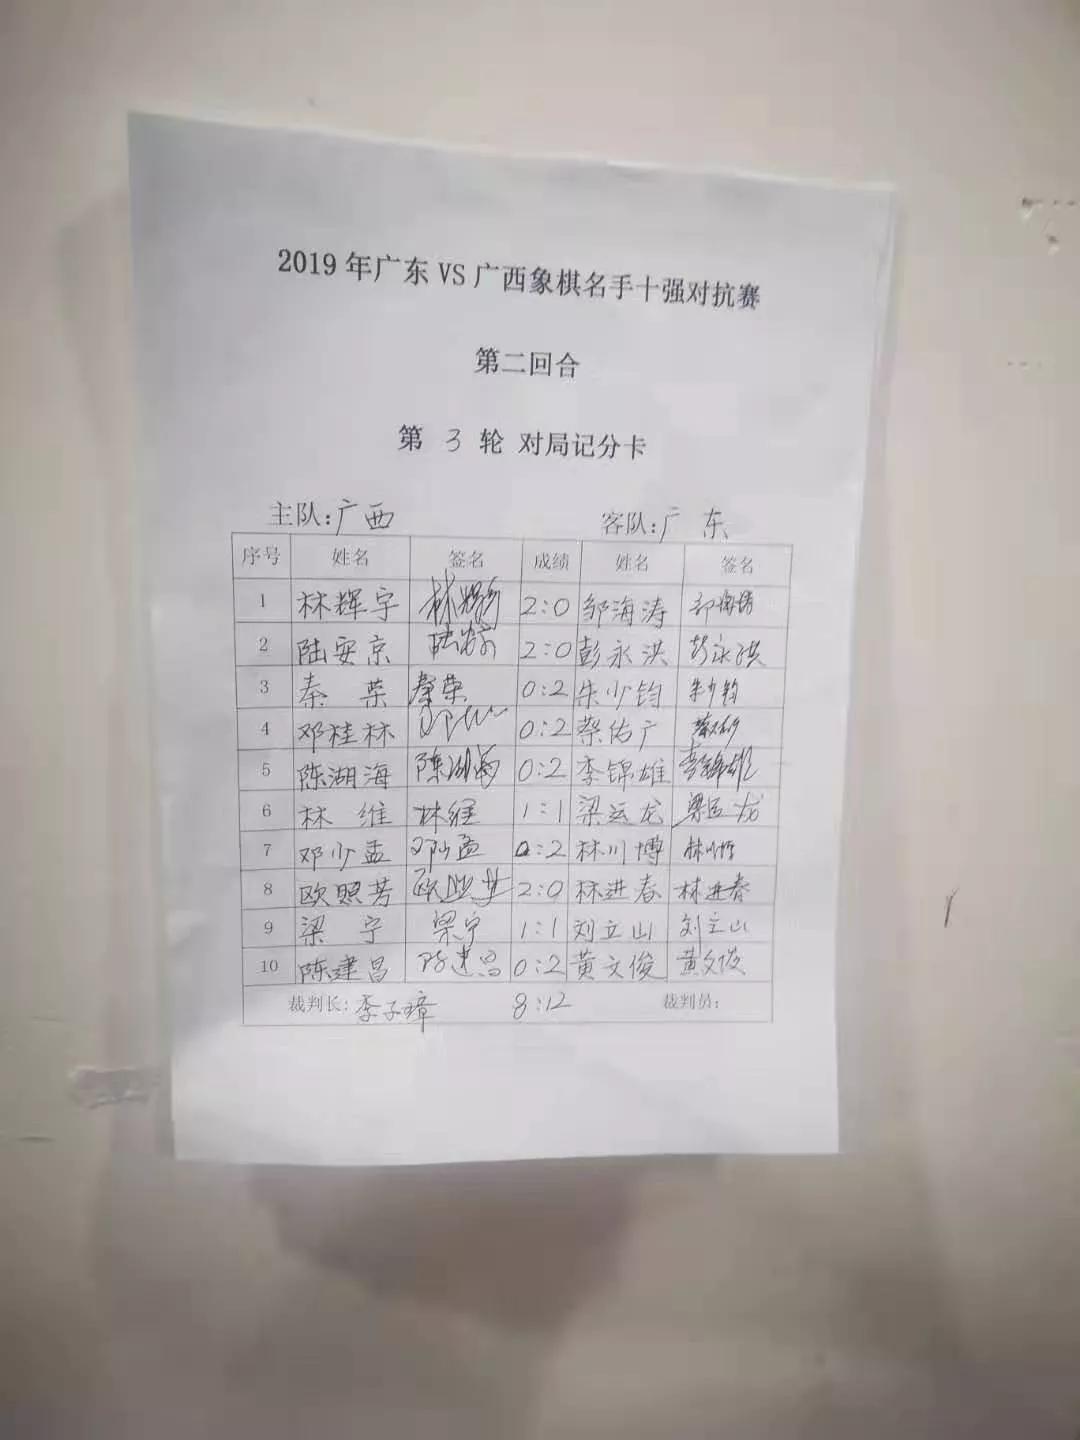 2019年广东VS广西象棋名手十强对抗赛
第二回合
第 3 轮 对局记分卡
主队:广西 客队:广东
序号 姓名 签名 成绩 姓名 签名
1 林辉宇 林辉宇 2:0 邹海涛 邹海涛
2 陆安京 陆安京 2:0 彭永洪 彭永洪
3 秦荣 秦荣 0:2 朱少钧 朱少钧
4 邓桂林 0:2 蔡佑广 蔡佑广
5 陈湖海 陈湖海 0:2 李锦雄 李锦雄
6 林维 林维 1:1 梁运龙 梁运龙
7 邓少孟 邓少孟 0:2 林川博 林川博
8 欧照芳 欧照芳 2:0 林进春 林进春
9 梁宁 梁宁 1:1 刘立山 刘立山
10 陈建昌 陈建昌 0:2 黄文俊 黄文俊
裁判长:李子璋 8:12 裁判员: